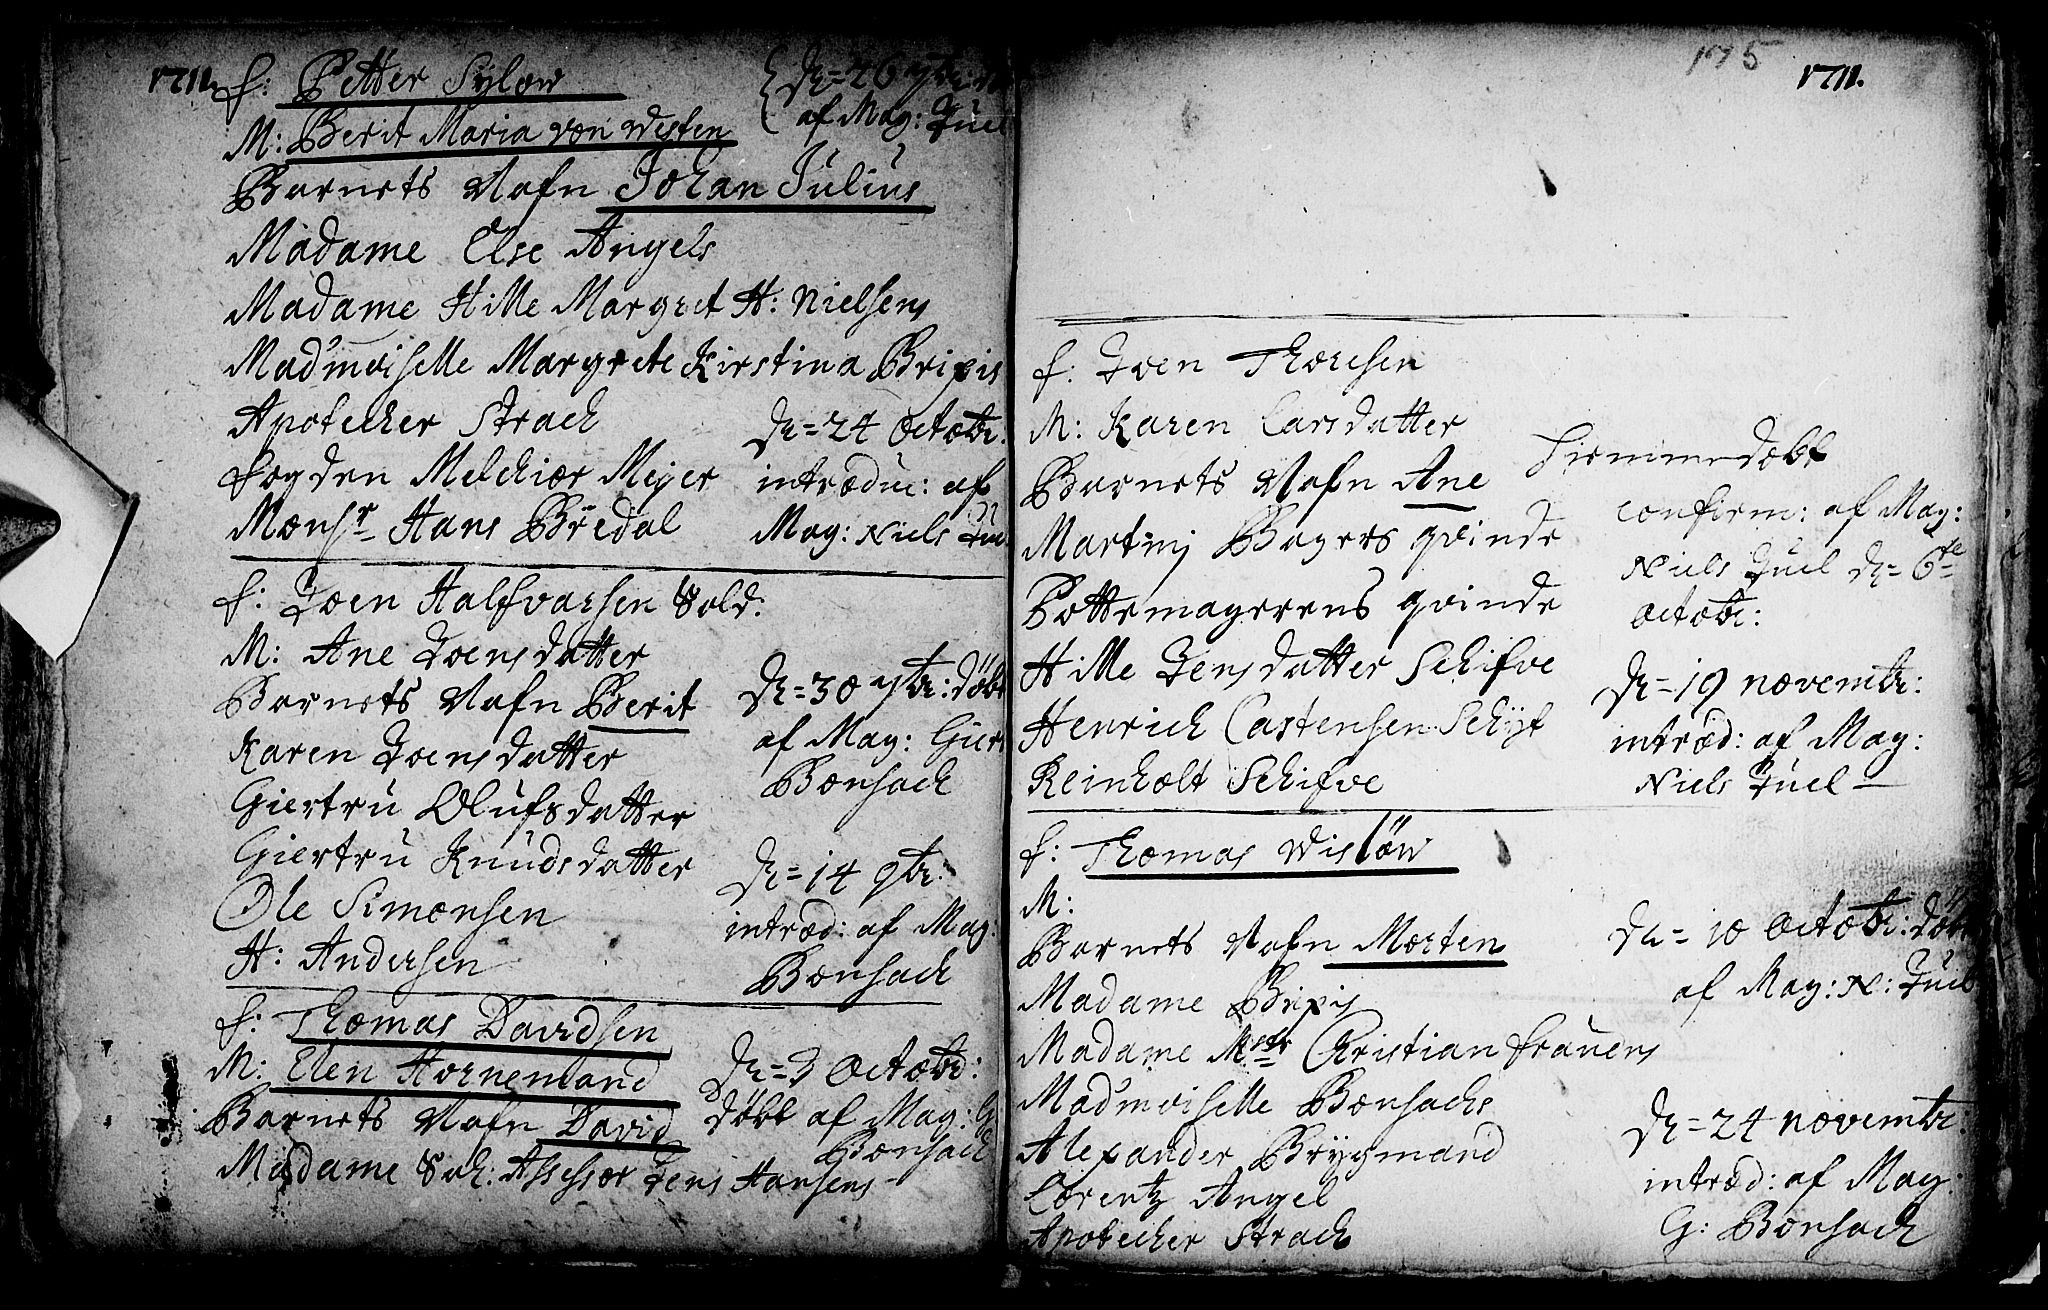 1711.
f: Petter Sylow
M: Berit Maria von Westen
Barnets Nafn Johan Julius
Madame Else Angels
Madame Hille Margret H: Nielsens
Mad'moiselle Margrete Kirstina Bripis
Apotecher Strach
Fogden Melchior Meyer
Monsr Hans Bredal
d. = 26 7br:
af Mag: Juel
d. = 24 Octobr.
introduc: af
Mag: Niels Juel
f: Joen Halfvorsen Sold:
M: Ane Joensdatter
Barnets Nafn Berit
Karen Joensdatter
Giertru Olufsdatter
Giertru Knudsdatter
Ole Simonsen
H: Andersen
d. = 30 7br: döbt
af Mag: Giert
Bonsach
d. = 14 9br:
introd: af Mag:
Bonsach
f: Thomas Davidsen
M: Elen Hornemand
Barnets Nafn David
Madame Sal: Assessor Jens Hansens
d. = 3 Octobr:
döbt af Mag: G
Bonsach
175
1711.
f: Joen Thoresen
M: Karen Larsdatter
Barnets Nafn Ane
Martinj Bagers qvinde
Pottemagerens qvinde
Hille Jensdatter Schifve
Henrich Castensen Schyt
Reinholt Schifve
Hiemmedøbt
confirm: af Mag:
Niels Juel d. = 6te
Octobr:
d. = 19 novembr:
introd: af Mag:
Niels Juel
f: Thomas Wislöw
M:
Barnets Nafn Morten
Madame Bripis
Madame Mstr Christian Frauens
Mad'moiselle Bonsachs
Alexander Brygmand
Lorentz Angel
Apotecher Strach
d. = 10 Octobr: döbt
af Mag: N: Juel
d. = 24 novembr:
introd: af Mag:
G: Bonsach